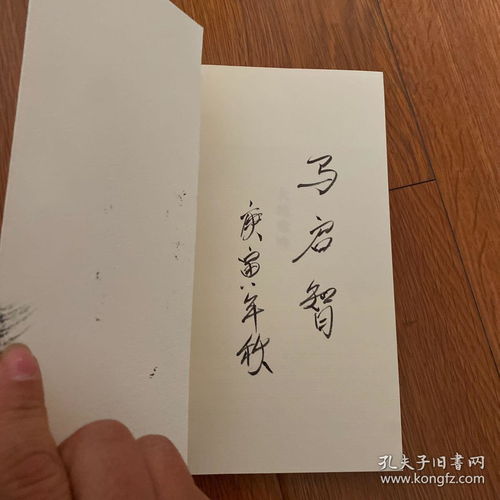 马启智
庚寅年秋
孔夫子旧书网
www.kongfz.com